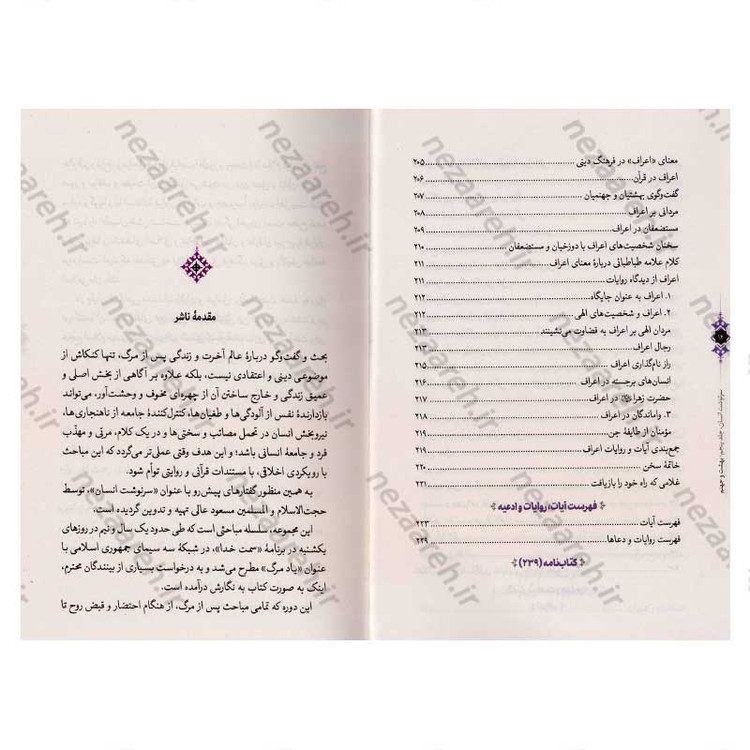 معنای «اعراف» در فرهنگ دینی ........ ۲۰۵
اعراف در قرآن ........ ۲۰۶
گفت‌وگوی بهشتیان و جهنمیان ........ ۲۰۷
مردانی بر اعراف ........ ۲۰۸
مستضعفان در اعراف ........ ۲۰۹
سخنان شخصیت‌های اعراف با دوزخیان و مستضعفان ........ ۲۱۰
کلام علامه طباطبائی دربارهٔ معنای اعراف ........ ۲۱۱
اعراف از دیدگاه روایات ........ ۲۱۱
۱. اعراف به عنوان جایگاه ........ ۲۱۲
۲. اعراف و شخصیت‌های الهی ........ ۲۱۲
مردان الهی بر اعراف به قضاوت می‌نشینند ........ ۲۱۳
رجال اعراف ........ ۲۱۳
راز نام‌گذاری اعراف ........ ۲۱۵
انسان‌های برجسته در اعراف ........ ۲۱۶
حضرت زهرا در اعراف ........ ۲۱۷
۳. واماندگان در اعراف ........ ۲۱۸
مؤمنان از طایفهٔ جن ........ ۲۱۹
جمع‌بندی آیات و روایات اعراف ........ ۲۱۹
خاتمهٔ سخن ........ ۲۲۰
غلامی که راه خود را بازیافت ........ ۲۲۱
فهرست آیات، روایات و ادعیه
فهرست آیات ........ ۲۲۳
فهرست روایات و دعاها ........ ۲۲۹
کتاب‌نامه (۲۳۹)
سرنوشت انسان، جلد پنجم: بهشت و جهنم
مقدمهٔ ناشر
بحث و گفت‌وگو دربارهٔ عالم آخرت و زندگی پس از مرگ، تنها کنکاش از
موضوعی دینی و اعتقادی نیست، بلکه علاوه بر آگاهی از بخش اصلی و
عمیق زندگی و خارج ساختن آن از چهره‌ای مخوف و وحشت‌آور، می‌تواند
بازدارندهٔ نفس از آلودگی‌ها و طغیان‌ها، کنترل‌کنندهٔ جامعه از ناهنجاری‌ها،
نیروبخش انسان در تحمل مصائب و سختی‌ها و در یک کلام، مربی و مهذّب
فرد و جامعهٔ انسانی باشد؛ و این هدف وقتی عملی‌تر می‌گردد که این مباحث
با رویکردی اخلاقی، با مستندات قرآنی و روایتی توأم شود.
به همین منظور گفتارهای پیش‌رو با عنوان «سرنوشت انسان»، توسط
حجت‌الاسلام و المسلمین مسعود عالی تهیه و تدوین گردیده است.
این مجموعه، سلسله مباحثی است که طی حدود یک سال و نیم در روزهای
یکشنبه در برنامهٔ «سمت خدا»، در شبکهٔ سه سیمای جمهوری اسلامی با
عنوان «یاد مرگ» مطرح می‌شد و به درخواست بسیاری از بینندگان محترم،
اینک به صورت کتاب به نگارش درآمده است.
این دوره که تمامی مباحث پس از مرگ، از هنگام احتضار و قبض روح تا
nezaareh.ir